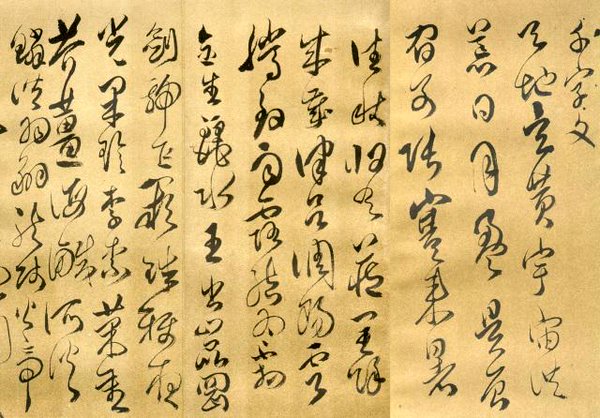 千字文
天地玄黃宇宙洪
荒日月盈昃辰
宿列張寒來暑
往秋收冬藏閏餘
成歲律呂調陽雲
騰致雨露結為霜
金生麗水玉出崑岡
劍號巨闕珠稱夜
光果珍李柰菜重
芥薑海鹹河淡
鱗潛羽翔龍師火帝